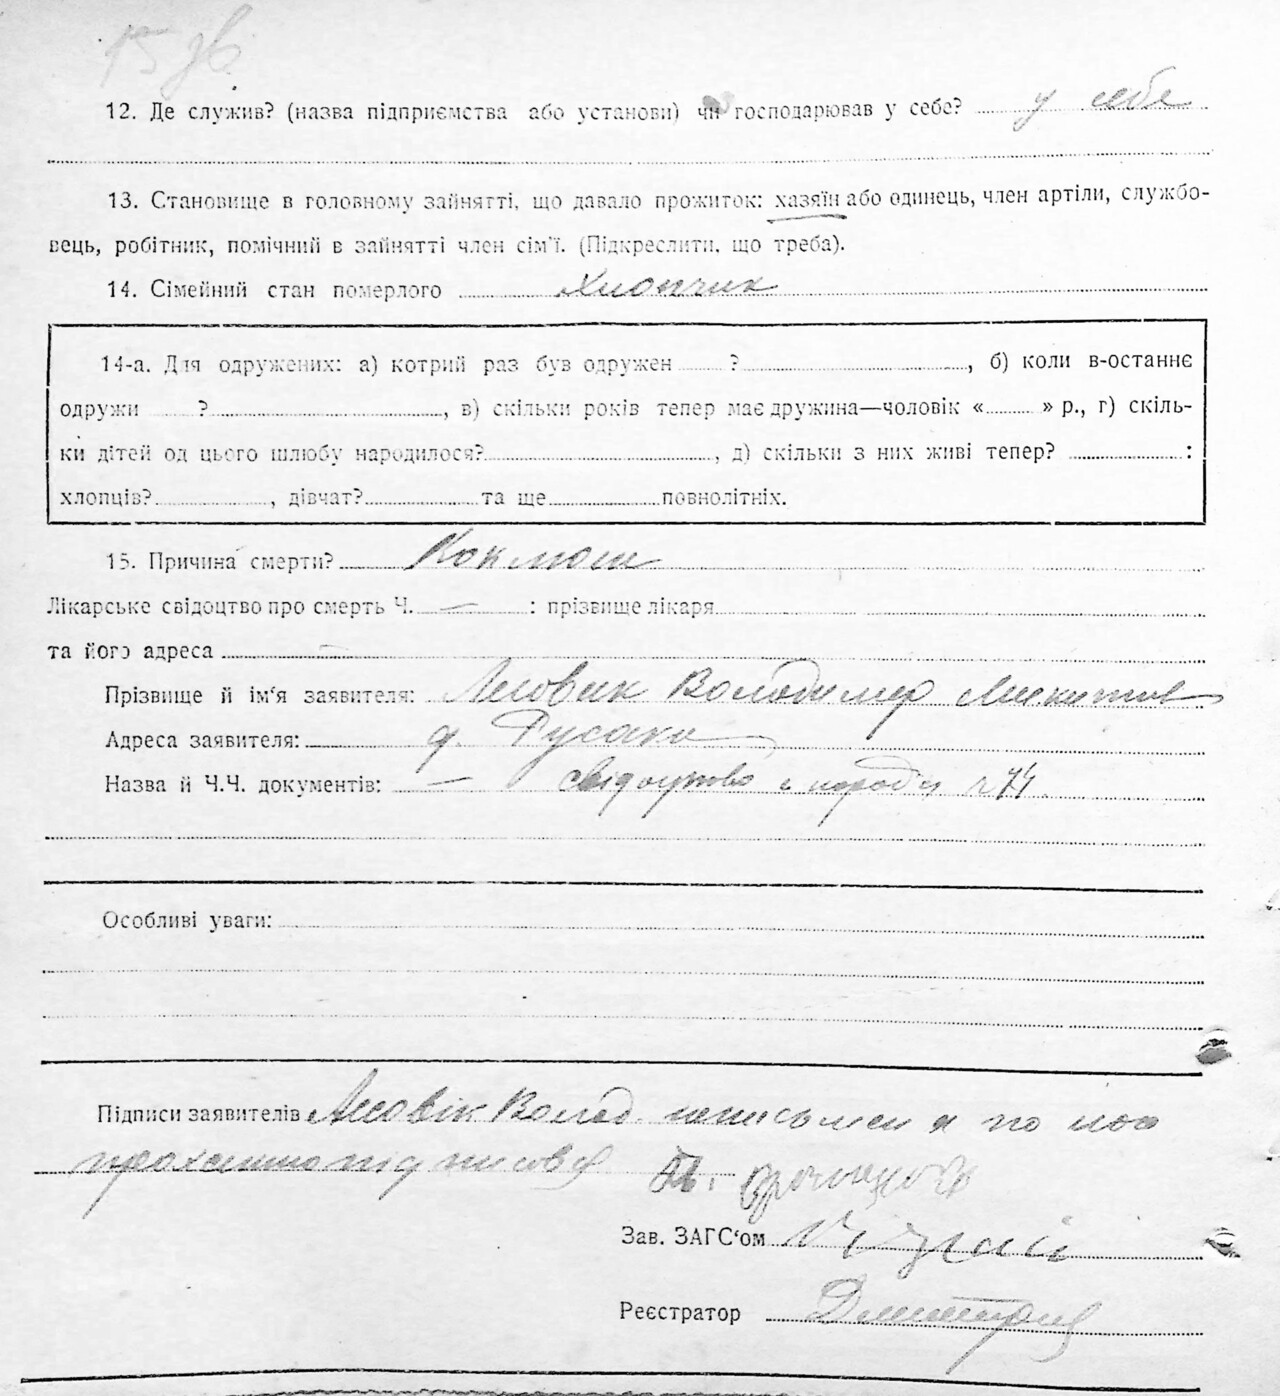 15 зв
12. Де служив? (назва підприємства або установи) чи господарював у себе? у себе
13. Становище в головному зайнятті, що давало прожиток: хазяїн або одинець, член артіли, службо-
вець, робітник, помічний в зайнятті член сім'ї. (Підкреслити, що треба).
14. Сімейний стан померлого Хлопчик
14-а. Для одружених: а) котрий раз був одружен ? , б) коли в-останнє
одружи ? , в) скільки років тепер має дружина—чоловік « » р., г) скіль-
ки дітей од цього шлюбу народилося? , д) скільки з них живі тепер? :
хлопців? , дівчат? та ще повнолітніх.
15. Причина смерти? Коклюш
Лікарське свідоцтво про смерть Ч. — : прізвище лікаря
та його адреса —
Прізвище й ім'я заявителя: Лисовик Володимир Микитов
Адреса заявителя: д. Русаки
Назва й Ч.Ч. документів: — свідоцтво народ 74
Особливі уваги:
Підписи заявителів Лисовік Волод. неписьмен а по його
проханню підписовся
Зав. ЗАГС'ом
Реєстратор